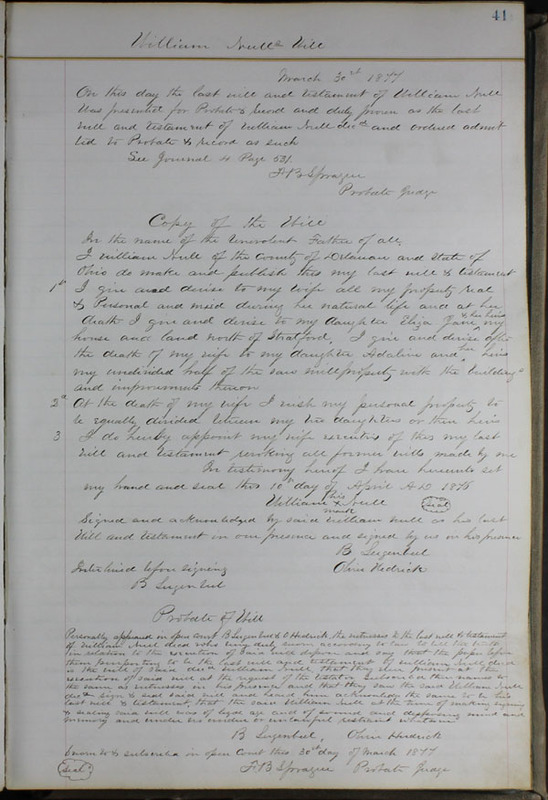 41
William Null's Will
March 30th 1877
On this day the last will and testament of William Null
was presented for Probate & Record and duly proven as the last
will and testament of William Null decd and ordered admit
ted to Probate & record as such
See Journal 4 Page 531.
F B Sprague
Probate Judge
Copy of the Will
In the name of the Benevolent Father of all,
I William Null of the County of Delaware and State of
Ohio do make and publish this my last will & testament
1st I give and devise to my wife all my property real
& Personal and mixed during her natural life and at her
death I give and devise to my daughter Eliza Jane & her heirs my
house and land north of Stratford, I give and devise after
the death of my wife to my daughter Adaline and her heirs
my undivided half of the saw mill property with the buildings
and improvements thereon
2d At the death of my wife I wish my personal property to
be equally divided between my two daughters or their heirs
3 I do hereby appoint my wife executrix of this my last
will and testament revoking all former wills made by me
In testimony hereof I have hereunto set
my hand and seal this 10th day of April AD 1875
William his x mark Null (Seal)
Signed and acknowledged by said William Null as his last
Will and Testament in our presence and signed by us in his presence
B Lugenbeel
Interlined before signing Olive Hedrick
B Lugenbeel
Probate of Will
Personally appeared in open court B Lugenbeel & O Hedrick the witnesses to the last will & testament
of William Null decd who being duly sworn according to law to tell the truth
in relation to the execution of said will depose and say that the paper before
them purporting to be the last will and testament of William Null decd
is the will of said decd William Null, that they were present at the
execution of said will at the request of the testator Subscribed their names to
the same as witnesses in his presence and that they saw the said William Null
decd sign & seal said will and heard him acknowledge the same to be his
last will & testament, that the said William Null at the time of making signing
& sealing said will was of legal age and of sound and disposing mind and
memory and under no undue or unlawful restraint whatever
B Lugenbeel, Olive Hedrick
Sworn to & subscribed in open Court this 30th day of March 1877
(Seal) F B Sprague Probate Judge